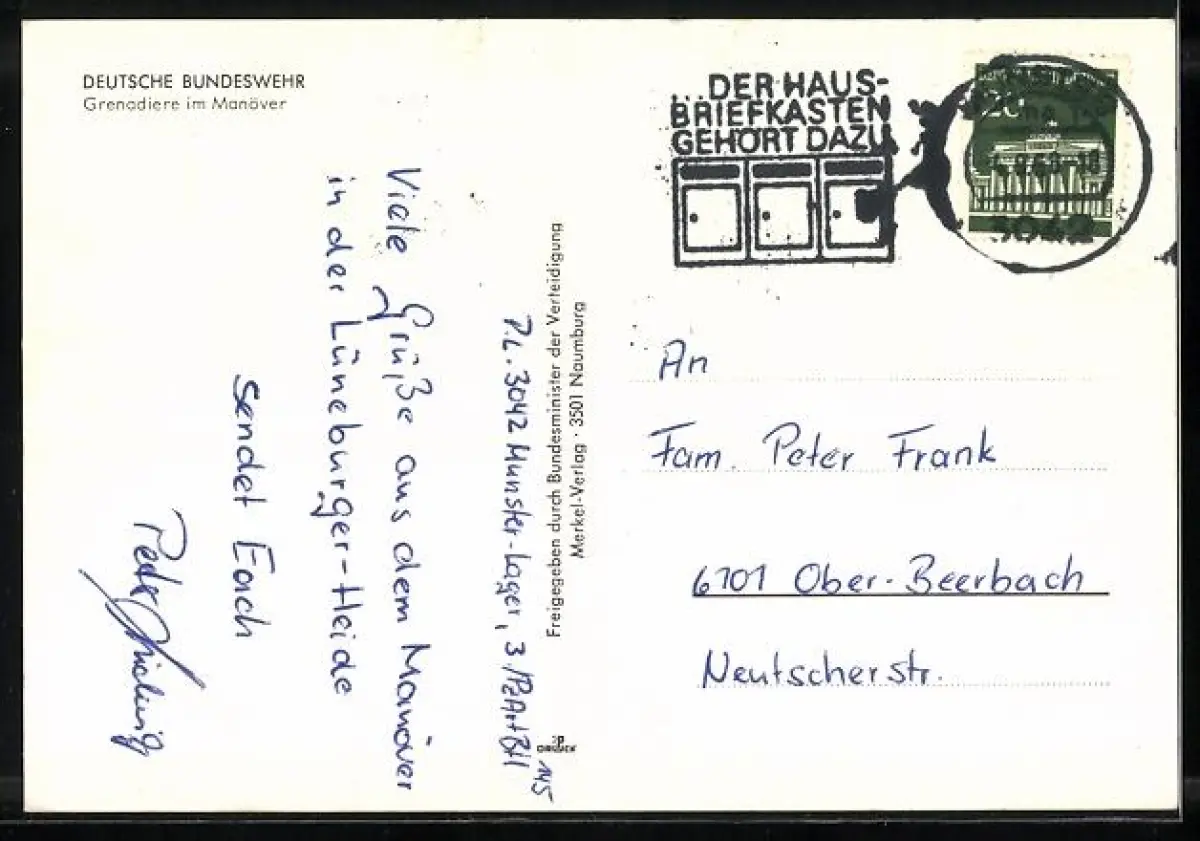 DEUTSCHE BUNDESWEHR
Grenadiere im Manöver
...DER HAUS-
BRIEFKASTEN
GEHÖRT DAZU
20
3042
Viele Grüße aus dem Manöver
in der Lüneburger-Heide
sendet Euch
Peter
P.L. 3042 Munster-Lager, 3/PzArtBtl
145
Freigegeben durch Bundesminister der Verteidigung
Merkel-Verlag · 3501 Naumburg
An
Fam. Peter Frank
6101 Ober-Beerbach
Neutscherstr.